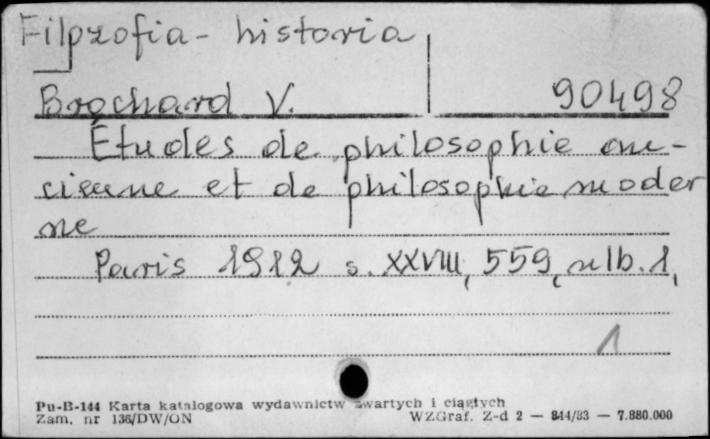 Filozofia - historia
Brochard V. 90498
Études de philosophie an-
cienne et de philosophie moder
ne
Paris 1912 s. XXVIII, 559, nlb. 1,
1
Pu-B-144 Karta katalogowa wydawnictw zwartych i ciągłych
Zam. nr 136/DW/ON WZGraf. Z-d 2 — 844/83 — 7.880.000